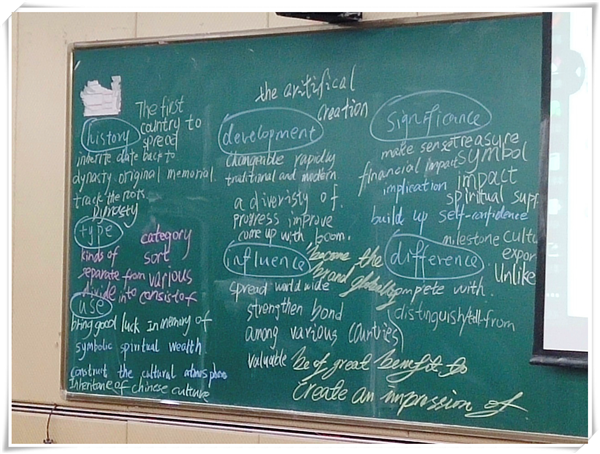 the aritifical
creation
history
The first
country to
spread
inherite date back to
dynasty original memorial.
track the roots.
Dynasty
type
category
kinds of sort
separate from various
divide into consist of
use
bring good luck In memory of
symbolic spiritual wealth
construct the cultural atmosphere
Inheritance of chinese culture
development
changable rapidly
traditional and modern
a diveristy of.
progress improve
come up with boom.
influence
become the
brand global
spread worldwide
strengthen bond
among various countries
valuable
be of great benefit to
create an impression of
significance
make sense treasure
financial impact symbol
implication impact
spiritual supp
build up self-confidence
milestone cultu
difference
expor
Unlike
complete with.
distinguish/tell from